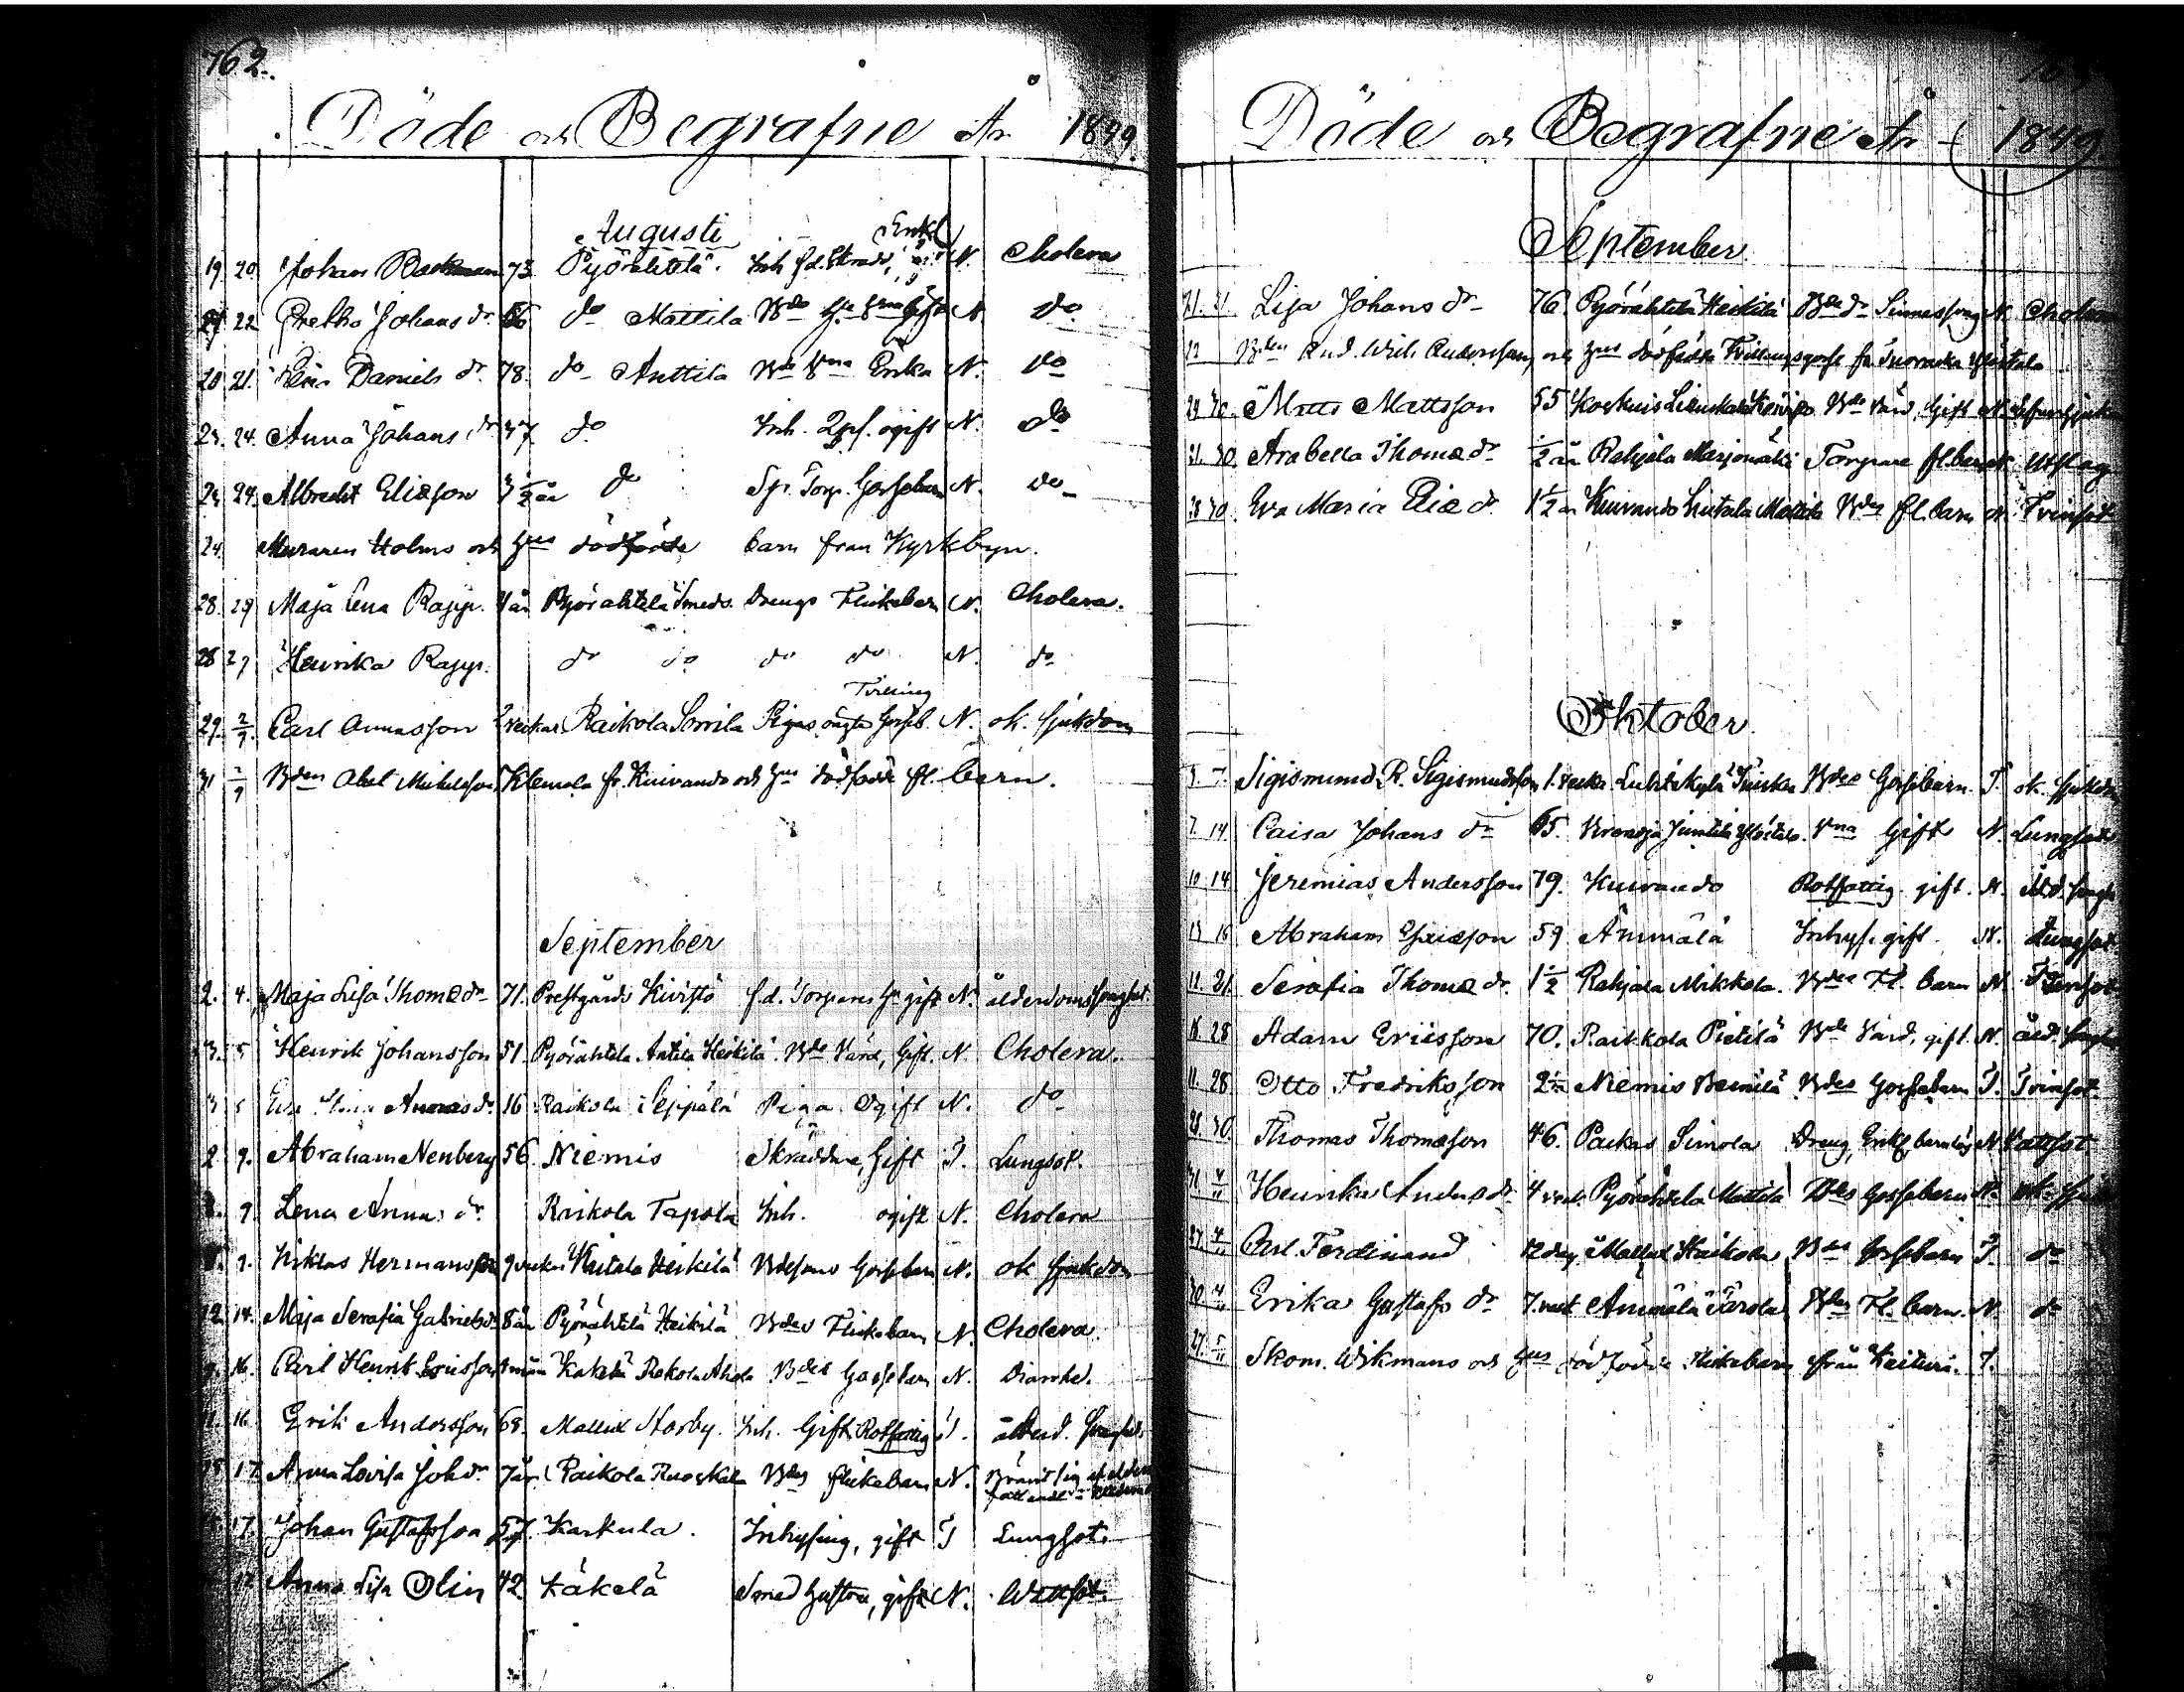 762.
Döde och Begrafne År 1849.
Augusti
Enkl.
19. 20. Johan Backman 73. Pyörähtelä. Inh. f.d. N. Cholera
22 Gretha Johans dr. 66 do Mattila N. do
20 21. Daniels dr. 78. do Anttila Enka N. do
23. 24. Anna Johans dr 37 do Inh. ogift N. do
23. 24. Albrecht Eliæson 3 1/2 år do Sp. Torp. Gossebarn N. do
24. Muraren Holms och hus dödfödde barn från Kyrkbyn.
28. 29 Maja Lena Rapp. 4 år Pyörähtelä Smeds. Drengs Flickebarn N. Cholera.
28 29 Henrika Rapp. do do do do N. do
Tvilling
29. 2/9. Carl Annasson 2 veckor Raikola Sorrila Pigas oägta Gosseb. N. ok. sjukdom
31 2/9 Bden Abel Michelsson Klemola fr. Kuivando och hus dödfödde fl. barn.
September
2. 4. Maja Lisa Thomæ dr 71. Prestgårds Kivistö f.d. Torpares h. gift N. ålderdomssvaghet.
3. 5 Henrik Johansson 51. Pyörähtelä Antila Heikilä Bde Värd, Gift. N. Cholera.
3 5 Eva Stina Annas dr 16 Raikola Seppälä Piga Ogift N. do
2 9. Abraham Nenberg 56. Niemis Skräddare, Gift T. Lungsot.
9. Lena Anna dr. Raikola Tapola Inh. ogift N. Cholera
9. Niklas Hermansson 9 veckor Kaitala Heikilä Bdesons Gossebarn N. ok sjukdom
12 14. Maja Serafia Gabriels dr 8 år Pyörähtelä Heikilä Bdes Flickebarn N. Cholera.
9. 16. Carl Henrik Ericsson 4 mån Käkelä Rekola Ahola Bdes Gossebarn N. Diarrhé.
16. Erik Andersson 68. Mallul Norby. Inh. Gift. Rotfattig T. ålderd. svaghet.
17. Anna Lovisa Joh. dr 7 år Raikola Ruoskala Bdes flickebarn N. Bränt sig af elden
17. Johan Gustafsson 57. Karkula. Inhysing, gift T Lungsot.
17 Anna Lisa Olin 42. Käkelä Smed hustru, gift N. Wattsot.
Döde och Begrafne År 1849.
September
21. Lisa Johans dr 76. Pyörähtelä Heikilä Sinnessvag N. Cholera
22 Bden And. Wilh. Andersson, och hus dödfödde Tvillingsgosse fr
30. Matts Mattsson 55 Koskuis Bde Värd, Gift N.
21. 30. Arabella Thomæ dr 1/2 år Rahjala Marjomäki Torpare fl. barn N. Utslag
28 30. Eva Maria Eliæ dr 1 1/2 år Kuivando Mattila Bdes fl. barn N. Tvinsot
Oktober.
5 7. Sigismund R. Sigismundsson 1. vecka Bdes Gossebarn. T. ok. sjukdom
7. 14 Caisa Johans dr 65. Junttila Yliötalo. Gift N. Lungsot
10 14 Jeremias Andersson 79. Kuivando Rotfattig gift. N. Åld. svagh.
13 16 Abraham 59 Ammälä Inhys. gift. N. Lungsot
11. 21. Serafia Thomæ dr. 1 1/2 Rahjala Mikkola. Bdes Fl. barn N. Tvinsot
18 28 Adam Ericsson 70. Raikkola Pietilä Bde Värd, gift. N. åld. svagh.
11. 28 Otto Fredriksson Niemis Bdes Gossebarn T. Tvinsot.
28. 30. Thomas Thomæson 46. Paukas Simola Dreng, Enkl. barnlös N. Wattsot
31 4/11 Henrika Anders dr 4 veck. Pyörähtelä Mattila Bdes Gossebarn N. ok. sjuk
27 4/11 Carl Ferdinand 12 dag. Mallul Haikola Bdes Gossebarn T. do
30 4/11 Erika Gustafs dr 7. veck Ammälä Tarola Bdes Fl. barn. N. do
27. 5/11 Skom. Wikmans och hus dödfödde flickebarn från Keituri. T.